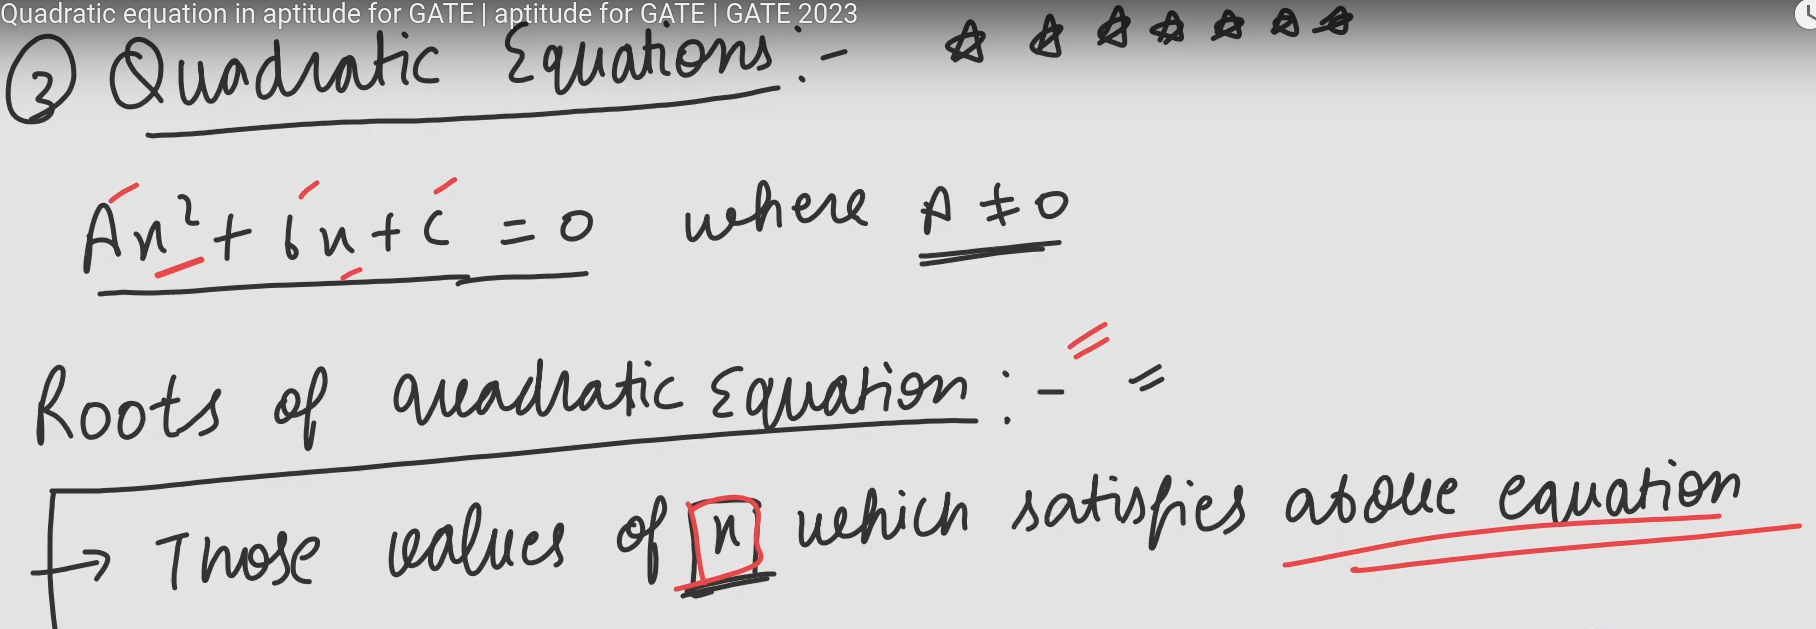 Quadratic equation in aptitude for GATE | aptitude for GATE | GATE 2023
③ Quadratic Equations :-
Ax² + bx + c = 0 where A ≠ 0
Roots of quadratic Equation :- =
→ Those values of x which satisfies above equation